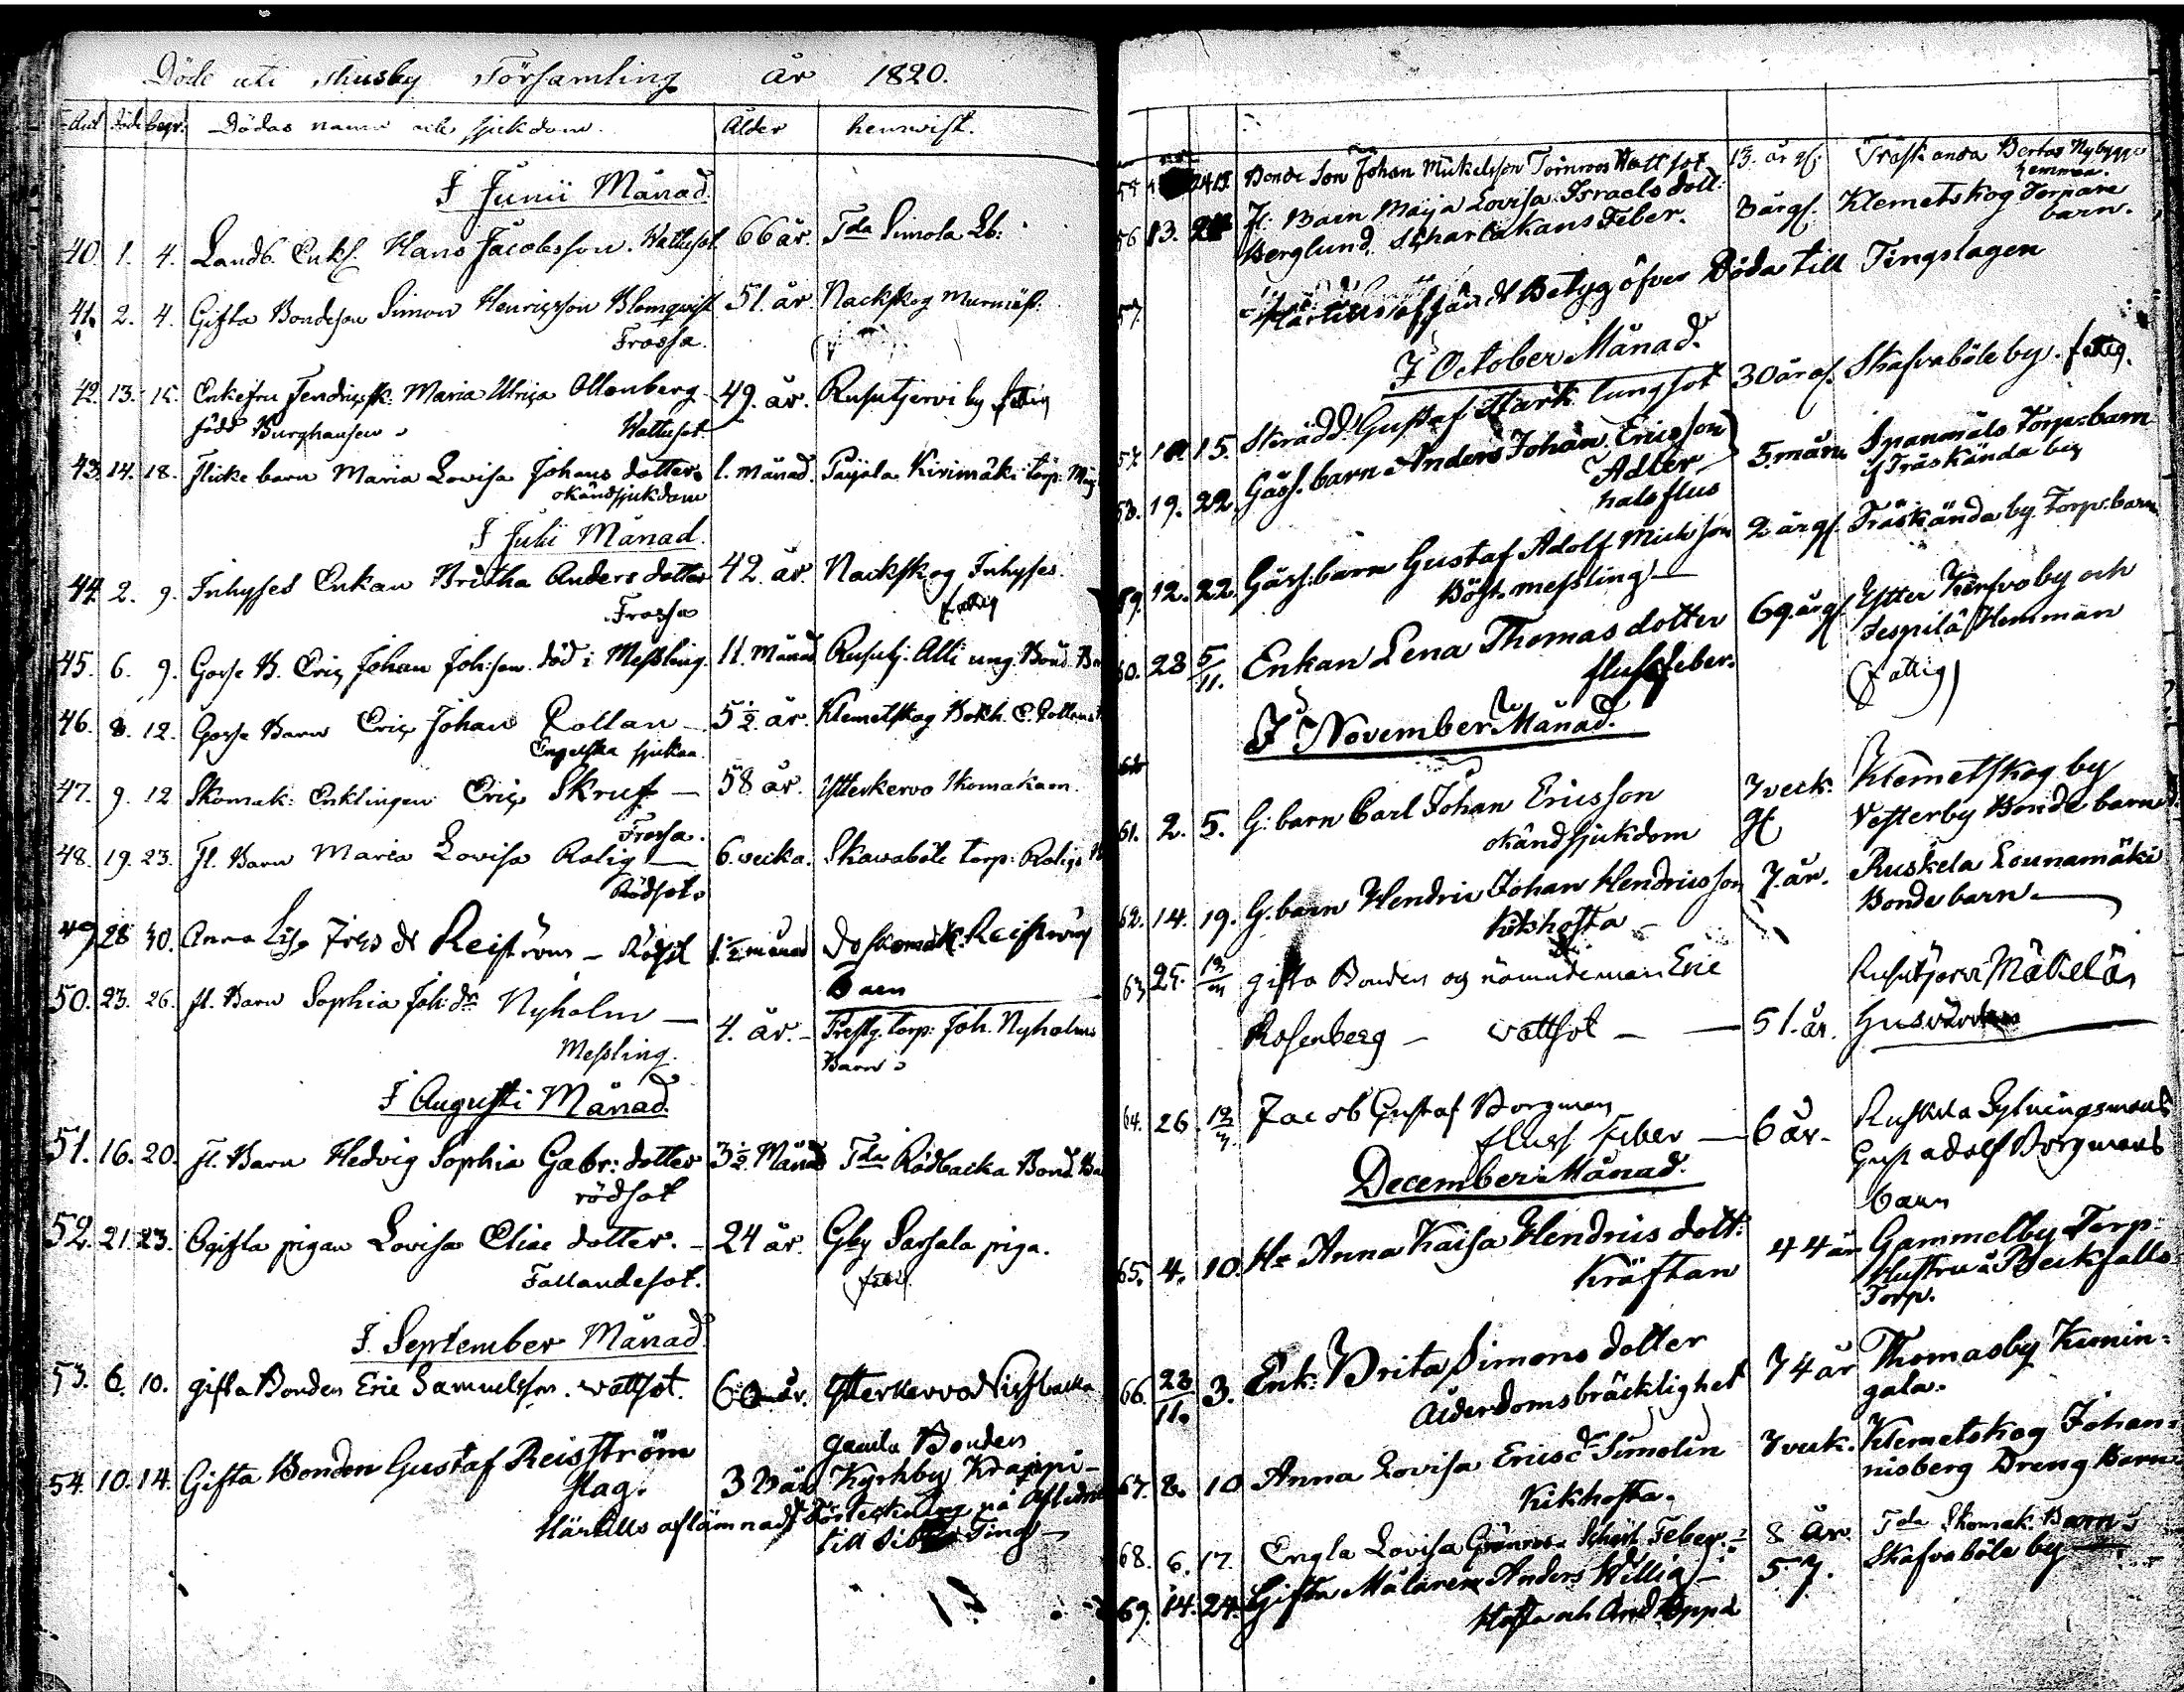 Döde uti Thusby Församling år 1820.
Döde begr. Dödas namn och sjukdom. Ålder hemvist.
I Junii Månad.
40. 1. 4. Landb. Enkl. Hans Jacobsson. Wattusot. 66 år. Tda Simola Lb:
41. 2. 4. Gifta Bondeson Simon Henricsson Blomqvist 51. år Nackskog Murmäst:
Frossa.
42. 13. 15. Enkefru Fendricsk: Maria Ulrica Ollonberg 49. år. Rusutjervi by fattig
född Burghausen Wattusot.
43. 14. 18. Flicke barn Maria Lovisa Johans dotter 1. månad. Paijala Kirimäki torp:
okänd sjukdom
I Julii Månad.
44. 2. 9. Inhyses Enkan Britha Anders dotter 42. år. Nackskog Inhyses.
Frossa fattig
45. 6. 9. Gosse B. Eric Johan Joh:son död i Messling. 11. Månad Rusutj. Alli ung. Bond. Ba
46. 8. 12. Gosse Barn Eric Johan Rollan 5 1/2 år. Klemetskog Bokh. E. Rollans
Engelska sjukan.
47. 9. 12 Skomak: Enklingen Eric Skruf — 58 år. Ytterkervo Skomakaren.
Frossa.
48. 19. 23. Fl. Barn Maria Lovisa Rolig — 6. vecka. Skavaböle torp: Roligs
Rödsot.
49 28 30. Anna Lisa Reiström — Rödsot 1 1/2 månad do skomak. Reiströms
Barn
50. 23. 26. Fl. Barn Sophia Joh: dr Nyholm — 4. år. — Prestg. torp: Joh. Nyholms
Messling. Barn
I Augusti Månad.
51. 16. 20. Fl. Barn Hedvig Sophia Gabr: dotter 3 1/2 Månad Tda Rödbacka Bond. Ba
rödsot
52. 21. 23. Ogifta pigan Lovisa Eliae dotter. — 24 år. Gby Sarsala piga.
Fallandesot.
I September Månad.
53. 6. 10. gifta Bonden Eric Samuelsson. wattsot. 60 år. Ytterkervo Nissbacka
gamla Bonden
54. 10. 14. Gifta Bonden Gustaf Reisström 3 Kyrkby Krappi-
slag.
Härtills aflämnadt Förteckning på Aflidne
till Ting —
55 Bonde Son Johan Mickelsson Törnroos Wattsot 13. år gl. Träskända Bertas Nybygge
hemman.
56 13. Fl: Barn Maija Lovisa Israels dott: 3 år gl. Klemetskog Torpare
Berglund. Scharlakans Feber. barn.
57. Härtills afsändt Betyg öfver Döda till Tingslagen
I October Månad.
57. 10. 15. Skrädd. Gustaf Stark lungsot 30 år gl. Skafvaböle by. fattig.
58. 19. 22. Gåss. barn Anders Johan Ericsson 5. mån. Spanmäls Torp: barn
Adler if Träskända by
halsflus
59. 12. 22. Gåss: barn Gustaf Adolf Michsson 2. år gl. Träskända by Torp: barn
Bögt. messling —
60. 28 5/11. Enkan Lena Thomas dotter 69. år gl. Ytter Kerfvo by och
fluss feber. Jespilä Hemman
(fattig)
I November Månad.
61. 2. 5. G: barn Carl Johan Ericsson 7 veck. Klemetskog by
okänd sjukdom gl Vesterby Bonde barn
62. 14. 19. G. barn Hendric Johan Hendricsson 7. år. Ruskela Lounamäki
Kikhosta — Bonde barn —
63 25. gifta Bonden og nämndeman Eric Rusutjervi Mäkelä
Rosenberg — wattsot — 51. år. Husvärden
64. 26. Jacob Gustaf Borgman
fluss feber — 6 år — Gust adolf Borgmans
barn
December Månad.
65. 4. 10. Hu Anna Kaisa Hendrics dott: 44 år Gammelby Torp:
Kräftan Hustru å Beckfalls
Torp.
66. 23/11. 3. Enk: Brita Simons dotter 74 år Thomasby Kunin=
Ålderdomsbräcklighet gala.
67. 8. 10 Anna Lovisa Ericsd Simolin 7 veck. Klemetskog Johan=
Kikhosta. nisberg Dreng Barn
68. 6. 17. Engla Lovisa Grönroos Scharl. Feber. 8 år Tda Skomak. Barn
69. 14. 24. Gifta Målaren Anders Willig — 57. Skafvaböle by
Hosta och Andtäppa